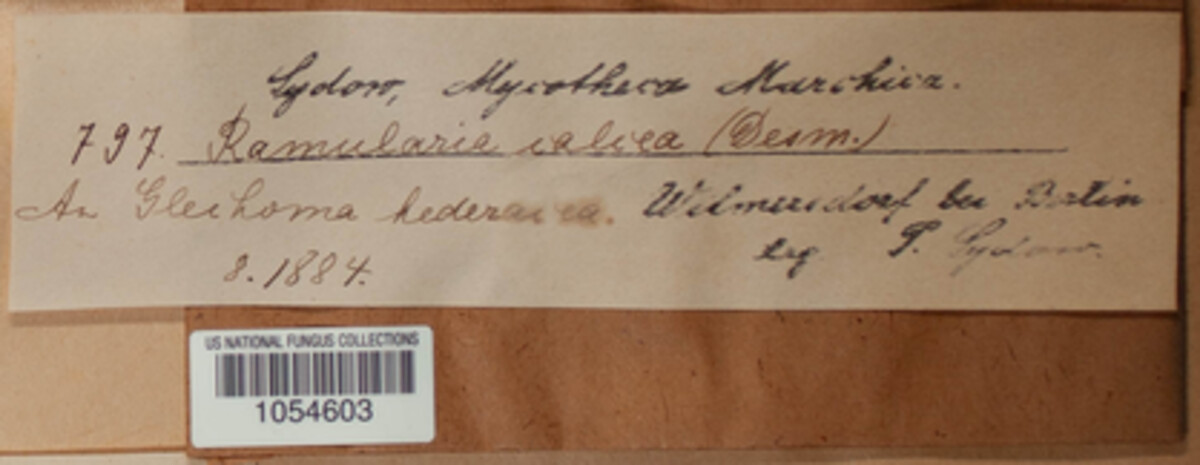 Sydow, Mycotheca Marchica.
797. Ramularia calcea (Desm.)
An Glechoma hederacea. Wilmersdorf bei Berlin
8. 1884. leg P. Sydow.
US NATIONAL FUNGUS COLLECTIONS
1054603